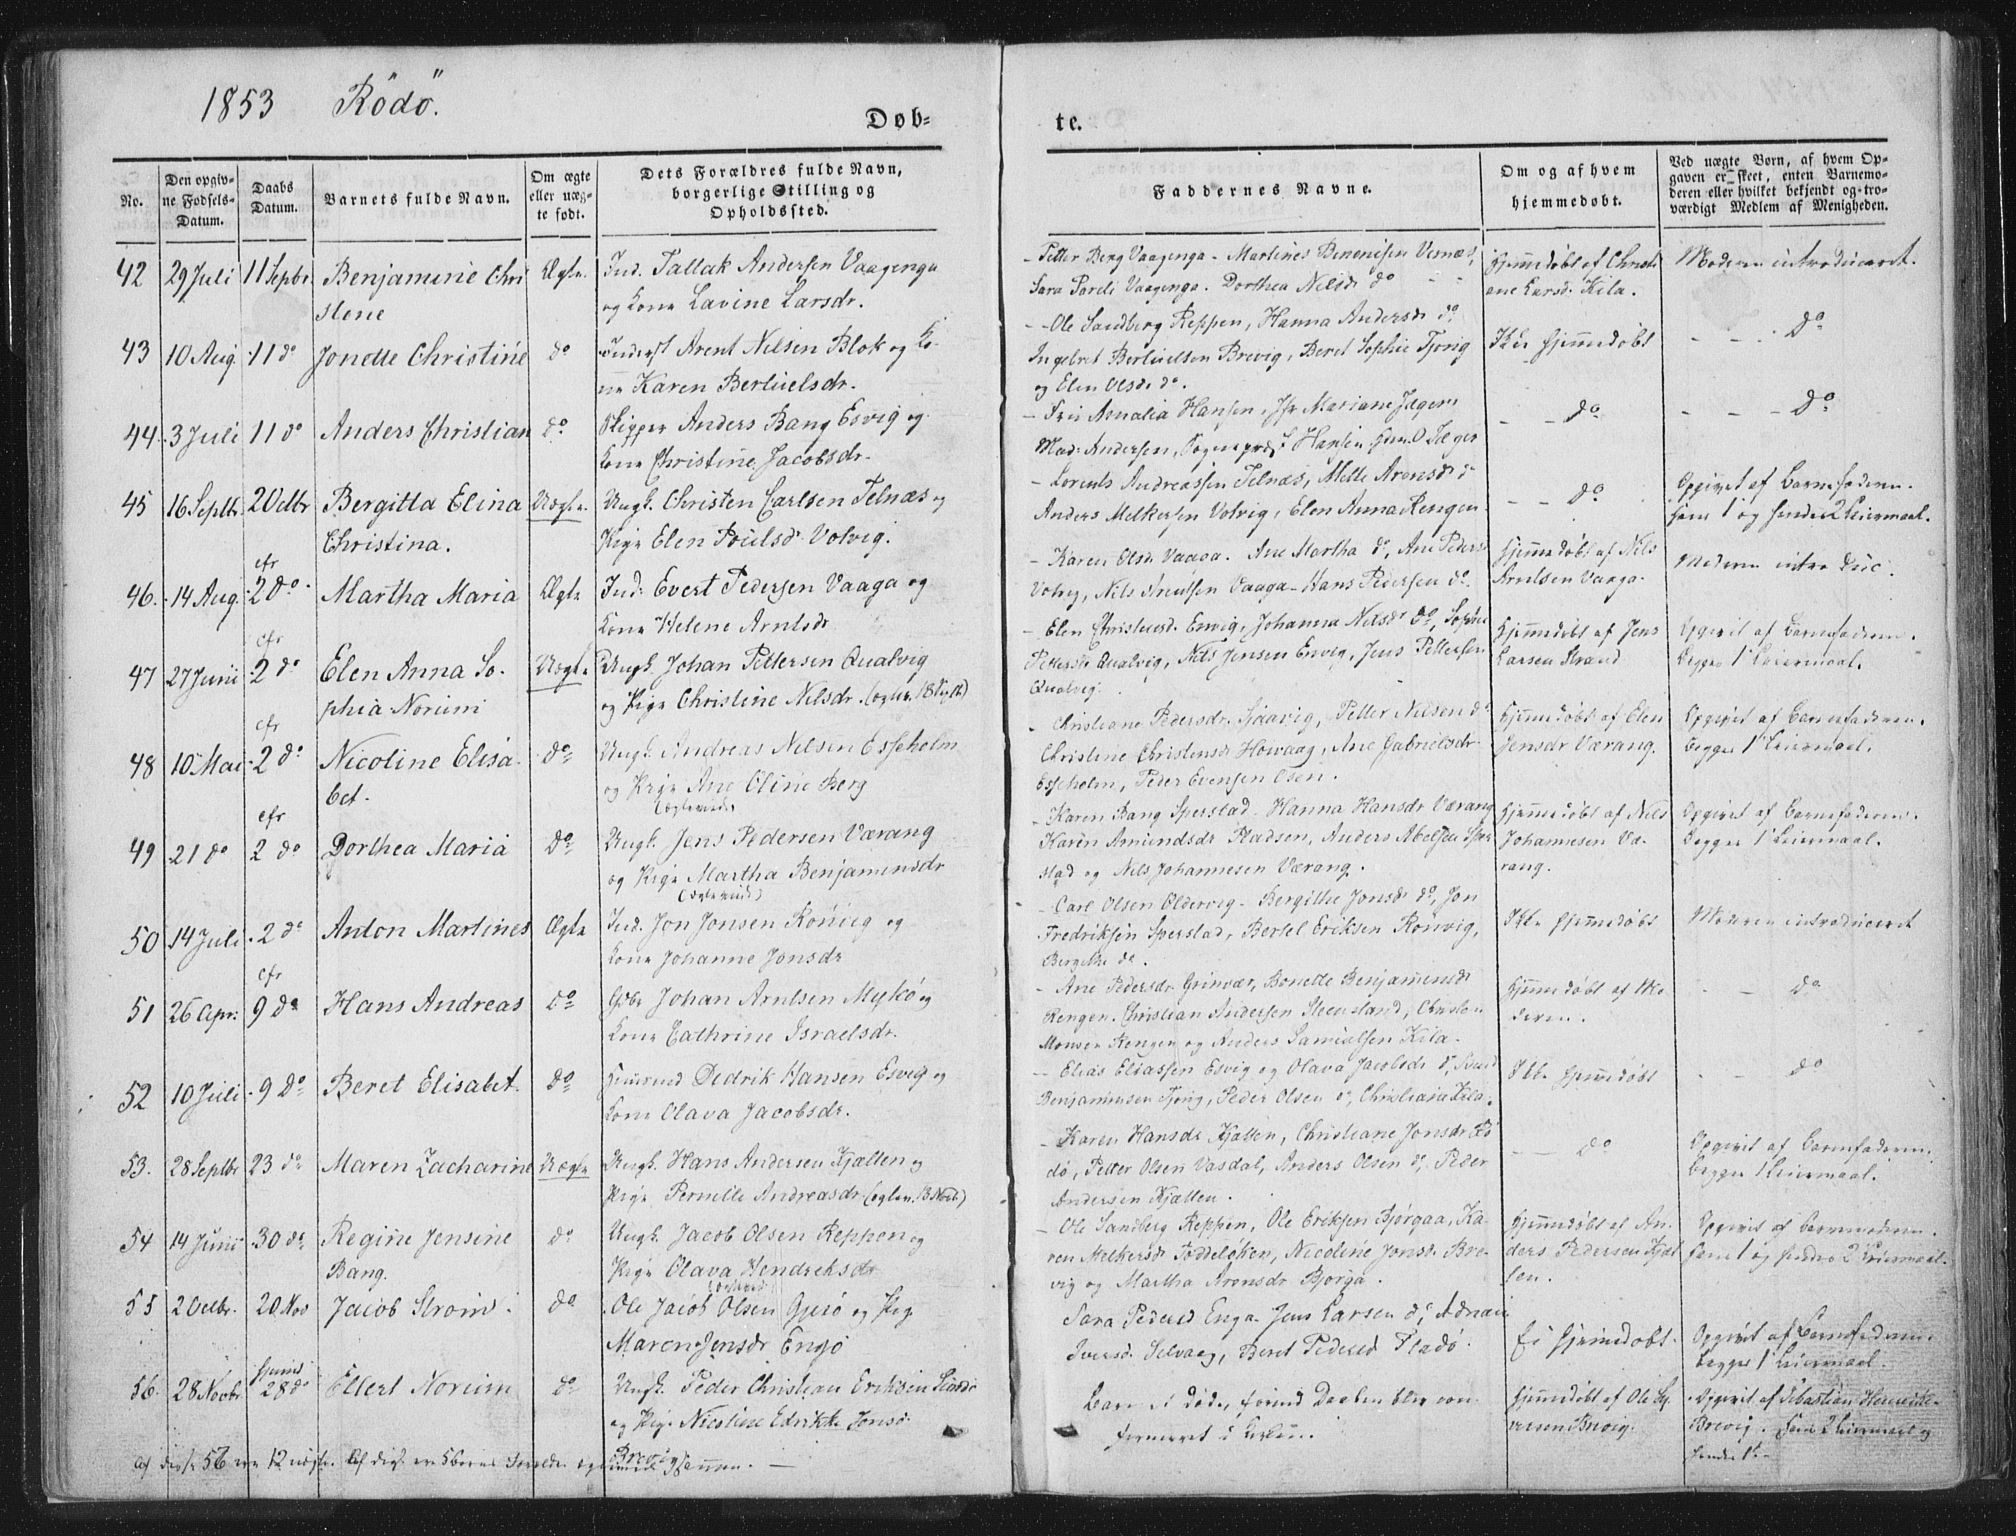 1853 Rödö.
Döb-
te.
No.
Den opgiv-
ne Födsels-
Datum.
Daabs
Datum.
Barnets fulde Navn.
Om ægte
eller uæg-
te født.
Dets Forældres fulde Navn,
borgerlige Stilling og
Opholdssted.
Faddernes Navne.
Om og af hvem
hjemmedøbt.
Ved uægte Børn, af hvem Op-
gaven er skeet, enten Barnemo-
deren eller hvilket bekjendt og tro-
værdigt Medlem af Menigheden.
42 29 Juli 11 Sepbr. Benjamine Chri
stene
Ægte. Ind. Tallak Andersen Vaagenga
og Kone Lavine Larsdr.
- Petter Berg Vaagenga - Martines Berentsen Vernæs,
Sara Pareli Vaagenga. Dorthea Nilsdr do
Hjemmedøbt af Christi
ane Larsd. Kila.
Moderen introduceret.
43 10 Aug. 11 do Jonette Christine do Inderst Arent Nilsen Blok og Ko-
ne Karen Bertuelsdr.
- Ole Sandberg Reppen, Hanna Andersdr do,
Ingebret Bertuelsen Brevig, Beret Sophie Tjong
og Elen Olsdr do.
Ikke hjemmedøbt
- - do
44. 3 Juli 11 do Anders Christian do Skipper Anders Bang Esvig og
Kone Christine Jacobsdr.
- Fru Amalia Hansen, Jfr Mariane Jæger
Mad: Andersen, Sognepræst Hansen, Jæger
- - do
- - - do
45 16 Septbr. 2 Octbr Bergitta Elina
Christina.
Uægte. Ungk. Christen Carlsen Telnæs og
Pige Elen Poulsdr Volvig.
- Lorents Andreassen Telnæs, Mette Aronsdr do
Anders Melkersen Volvig, Elen Anna Rengen.
- - do
Opgivet af Barnefaderen.
hans 1 og hendes 2 Leiermaal.
46. 14 Aug. cfr 2 do Martha Maria Ægte Ind: Evert Pedersen Vaaga og
Kone Helene Arntsdr
- Karen Olsdr Vaaga. Ane Martha do, Ane Pedersdr
Volvig, Nils Arntsen Vaaga - Hans Pedersen do.
Hjemmedøbt af Nils
Arntsen Vaaga.
Moderen introduc.
47 27 Juni cfr 2 do Elen Anna So-
phia Norum
Uægte Ungk. Johan Pettersen Qualvig
og Pige Christine Nilsdr.
- Elen Christensd. Esvig, Johanna Nilsdr do, Sophie
Pettersdr Qualvig, Nils Jensen Esvig, Jens Pettersen
Qualvig.
Hjemmedøbt af Jens
Larsen Strand
Opgivet af Barnefaderen.
begges 1ste Leiermaal.
48 10 Mai cfr 2 do Nicoline Elisa-
bet.
do Ungk. Andreas Nilsen Esseholm
og Pige Ane Oline Berg
- Christiane Pedersdr. Sjaavig, Petter Nilsen do
Christine Christensdr Hovaag, Ane Gabrielsdr
Esseholm, Peder Evensen Osen.
Hjemmedøbt af Elen
Jensdr Værang.
Opgivet af Barnefaderen.
begges 1ste Leiermaal.
49 21 do cfr 2 do Dorthea Maria do Ungk. Jens Pedersen Værang
og Pige Martha Benjaminsdr
- Karen Bang Sperstad. Hanna Hansdr Værang
Karen Amundsdr Stadsen, Anders Abelsen Sper
stad og Nils Johannesen Værang.
Hjemmedøbt af Nils
Johannesen Væ-
rang.
Opgivet af Barnefaderen.
begges 1ste Leiermaal.
50 14 Juli 2 do Anton Martines Ægte Ind. Jon Jonsen Ronvig og
Kone Johanne Jonsdr
- Carl Olsen Oldervig - Bergithe Jonsdr do, Jon
Fredriksen Sperstad, Bertel Eriksen Ronvig,
Bergithe do.
Ikke hjemmedøbt
Moderen introduceret
51 26 Apr: cfr 9 do Hans Andreas do Gdbr Johan Arntsen Myko og
Kone Cathrine Israelsdr.
- Ane Pedersdr Grinvær, Bonette Benjaminsdr
Rengen, Christian Andersen Steensland,
Monsen Rengen og Anders Samuelsen Kila.
Hjemmedøbt af Mo
deren.
- - do
52 10 Juli 9 do Beret Elisabet. do Dedrik Hansen Esvig og
Kone Olava Jacobsdr.
- Elias Eliassen Esvig og Olava Jacobsdr do,
Benjaminsen Tjong, Peder Olsen do, Christiana Kila.
Ikke hjemmedøbt
- - do
53. 28 Septbr 23 do Maren Zacharine Uægte Ungk. Hans Andersen Kjælten og
Pige Pernille Andreasdr
- Karen Hansdr Kjælten, Christiane Jonsdr Rö
dö, Petter Olsen Vasdal, Anders Olsen do, Peder
Andersen Kjælten.
- - do
Opgivet af Barnefaderen
begges 1 Leiermaal.
54 14 Juni 30 do Regine Jensine
Bang.
do Ungk. Jacob Olsen Reppen og
Pige Olava Hendriksdr
- Ole Sandberg Reppen, Ole Eriksen Bjørgaa, Ka-
ren Melkersdr, Nicoline Jonsdr Bre-
vig og Martha Aronsdr Bjørga.
Hjemmedøbt af An-
ders Pedersen Kjæl
ten.
Opgivet af Barnemoderen.
hans 1 og hendes 2 Leiermaal.
55 2 Octbr. 20 Nov Jacob Strøm. do Ole Jacob Olsen Gjesø og Pig
Maren Jensdr Engø
Sara Pedersd Enga. Jens Larsen do,
Iversd. Selvaag, Beret Pedersd
Ei hjemmedøbt.
Opgivet af Barnefaderen
begges 1 Leiermaal.
56. 28 Novbr 28 do Ellert Norum do Ungk. Peder Christian Eriksen
og Pige Nicoline Edrikke Jonsd.
Brevig
Barnet døde, forend Daaben blev con
firmeret i Kirken.
Hjemmedøbt af Ole Sy
versen Brevig.
Opgivet af Sebastian
Brevig. hans 2 Leiermaal og
hendes 1ste
Af disse 56 ere 12 uægte.